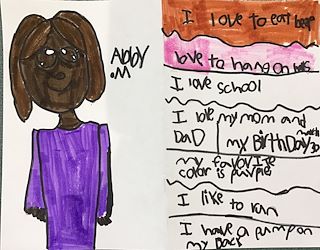 Abby
.M
I love to eat beef
love to hang on
I love school
I love my mom and
DaD
my BirthDay
my favorite
color is purple
I like to run
I have a bump on
my Back